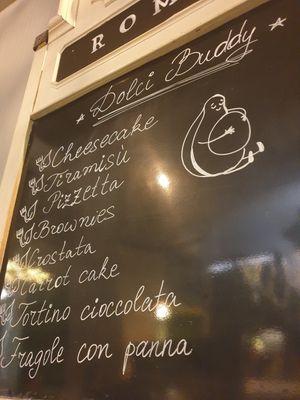 ROM
* Dolci Buddy *
Cheesecake
Tiramisù
Pizzetta
Brownies
Crostata
Carrot cake
Tortino cioccolata
Fragole con panna